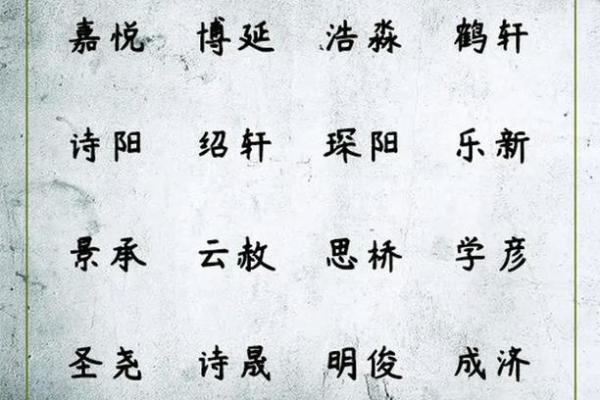 嘉悦 博延 浩淼 鹤轩
诗阳 绍轩 琛阳 乐新
景承 云赦 思桥 学彦
圣尧 诗晟 明俊 成济